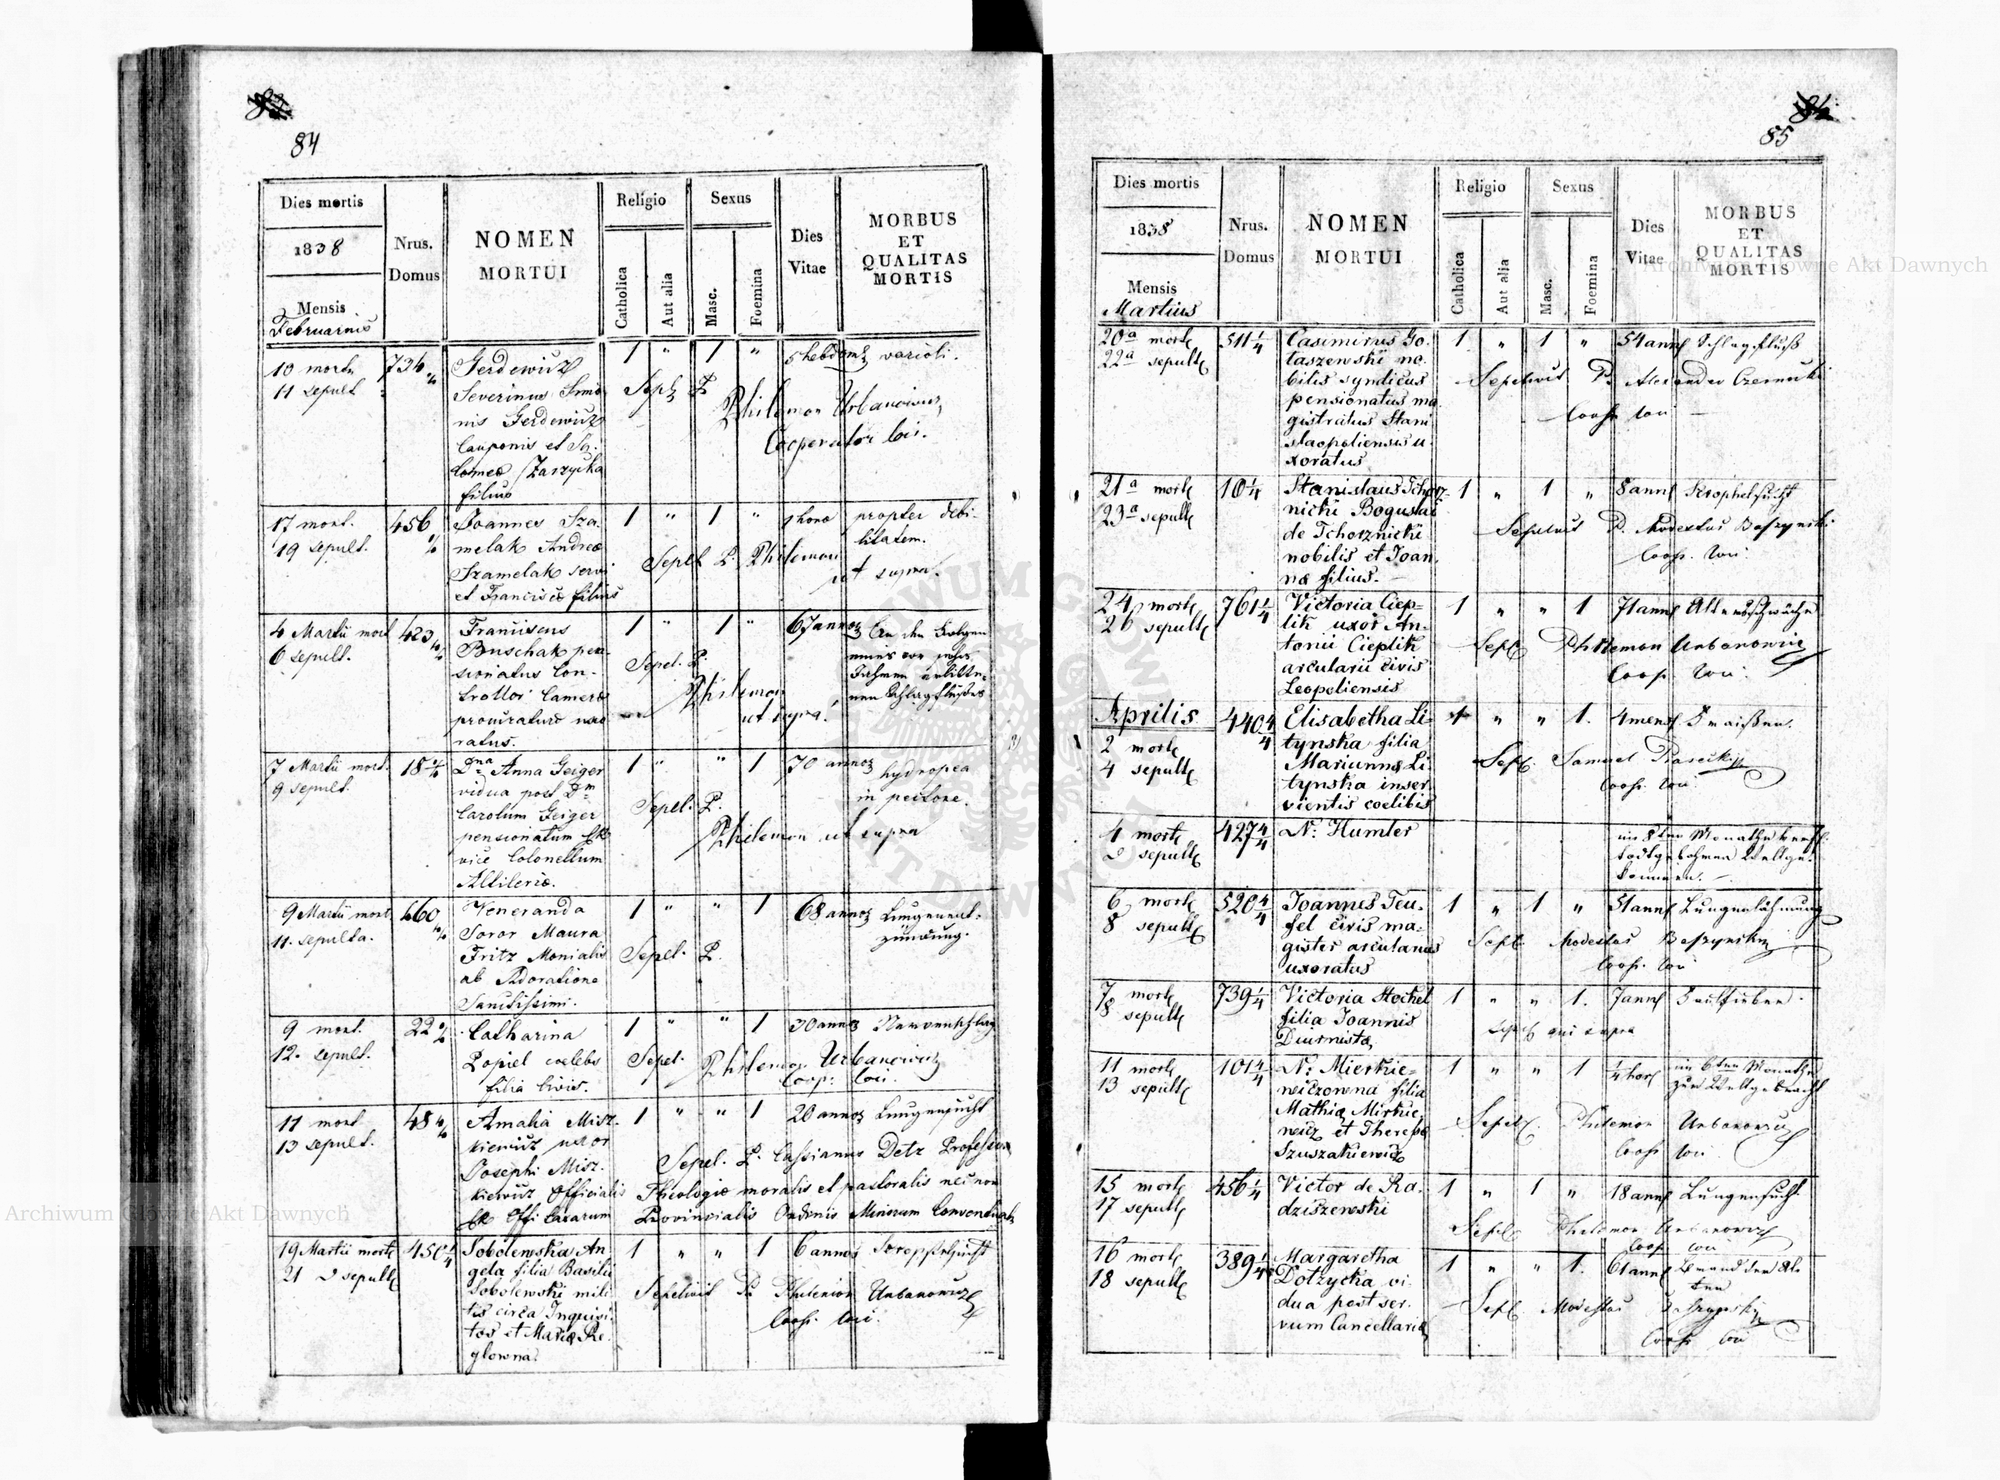 84
Dies mortis
1838
Mensis
Februarius
Nrus.
Domus
NOMEN
MORTUI
Religio
Catholica
Aut alia
Sexus
Masc.
Foemina
Dies
Vitae
MORBUS
ET
QUALITAS
MORTIS
10 mort.
11 sepult.
734
Gerdewicz
Severinus Simo
nis Gerdewicz
Cauponis et
Zarzycka
filius
1 " 1 "
5 hebdom. varioli.
Philemon Urbanowicz
Cooperator loci.
17 mort.
19 sepult.
456
Joannes Sza-
melak Andreæ
Szamelak servi
et Franciscæ filius
1 " 1 "
1 hora
propter debi-
litatem.
Sepel. P. Philemon
ut supra.
4 Martii mort.
6 sepult.
423
Franciscus
Buschak pen
sionatus Con-
trollor Cameræ
procuraturæ uxo
ratus.
1 " 1 "
67 annos
An den Folgen
eines vor sechs
Jahren erlitte-
nen Schlagflußes
Sepel. P.
Philemon
ut supra.
7 Martii mort.
9 sepult.
18
Dna Anna Geiger
vidua post Dm
Carolum Geiger
pensionatum
vice Colonellum
Altileriæ.
1 " " 1
70 annos
hydropea
in pectore.
Sepel. P.
Philemon ut supra
9 Martii mort.
11. sepulta.
460
Veneranda
Soror Maura
Fritz Monialis
ab Adoratione
Sanctissimi.
1 " " 1
68 annos
Lungenent-
zündung.
Sepel. P.
9 mort.
12. sepult.
22
Catharina
Popiel coelebs
filia Civis.
1 " " 1
30 annos Nervenschlag
Sepel. Philemon Urbanowicz
Coop: loci.
11 mort.
13 sepult.
48
Amalia Misz-
kiewicz uxor
Josephi Misz-
kiewicz Officialis
1 " " 1
20 annos Lungensucht
Sepel. P. Cassianus Detz Professor
Theologiæ moralis et pastoralis nec non
Provincialis Ordinis Minorum Conventual.
19 Martii mort.
21 sepult.
450
Sobolewska An-
gela filia Basilii
Sobolewski mili-
tis circa Inquisi-
tos et Mariæ Re-
glowna.
1 " " 1
6 annos
Sepelivit P. Philemon Urbanowicz
Coop. loci.
85
Dies mortis
1838
Mensis
Martius
Nrus.
Domus
NOMEN
MORTUI
Religio
Catholica
Aut alia
Sexus
Masc.
Foemina
Dies
Vitae
MORBUS
ET
QUALITAS
MORTIS
20a mort.
22a sepult.
511 1/4
Casimirus Go-
taszewski no-
bilis syndicus
pensionatus ma
gistratus Stani
slaopoliensis u-
xoratus
1 " 1 "
54 ann. Schlagfluß
Sepelivit P. Alexander Czernecki
Coop. loci
21a mort.
23a sepult.
10 1/4
Stanislaus Tchorz-
nicki Boguslai
de Tchorznicki
nobilis et Joan-
næ filius.
1 " 1 "
8 ann. Skrophelsucht
Sepelivit P. Modestus
Coop. loci.
24 mort.
26 sepult.
761 1/4
Victoria Ciep-
lik uxor An-
tonii Cieplik
arcularii civis
Leopoliensis
1 " " 1
71 ann. Altersschwäche
Sepel. Philemon Urbanowicz
Coop. loci.
Aprilis
2 mort.
4 sepult.
440 4/4
Elisabetha Li-
tynska filia
Mariannæ Li-
tynska inser-
vientis coelibis
1 " " 1.
4 mens. Fraißen.
Sepel. Samuel
Coop. loci.
4 mort.
sepult.
427 4/4
N: Humler
6 mort.
8 sepult.
520 4/4
Joannes Teu-
fel civis ma-
gister arcularius
uxoratus
1 " 1 "
51 ann. Lungenlähmung
Sepel. Modestus
Coop. loci
7 mort.
8 sepult.
739 1/4
Victoria Hockel
filia Joannis
Diurnistæ
1 " " 1.
7 ann. Faulfieber.
Sepel. qui supra
11 mort.
13 sepult.
101 4/4
N: Mierkie-
wiczowna filia
Mathiæ Mirkie-
wicz et Theresæ
Szuszakiewicz
1 " " 1
1/4 hor.
im 6ten Monathe
zur Welt gebracht
Sepel. Philemon Urbanowicz
Coop. loci.
15 mort.
17 sepult.
456 1/4
Victor de Ra-
dziszewski
1 " 1 "
18 ann. Lungensucht.
Sepel. Philemon Urbanowicz
Coop. loci
16 mort.
18 sepult.
389 1/4
Margaretha
Dotzycka vi-
dua post ser-
vum Cancellariæ
1 " " 1.
61 ann. Brand der Al-
ten
Sepel. Modestus
Coop. loci
Archiwum Główne Akt Dawnych
Archiwum Główne Akt Dawnych